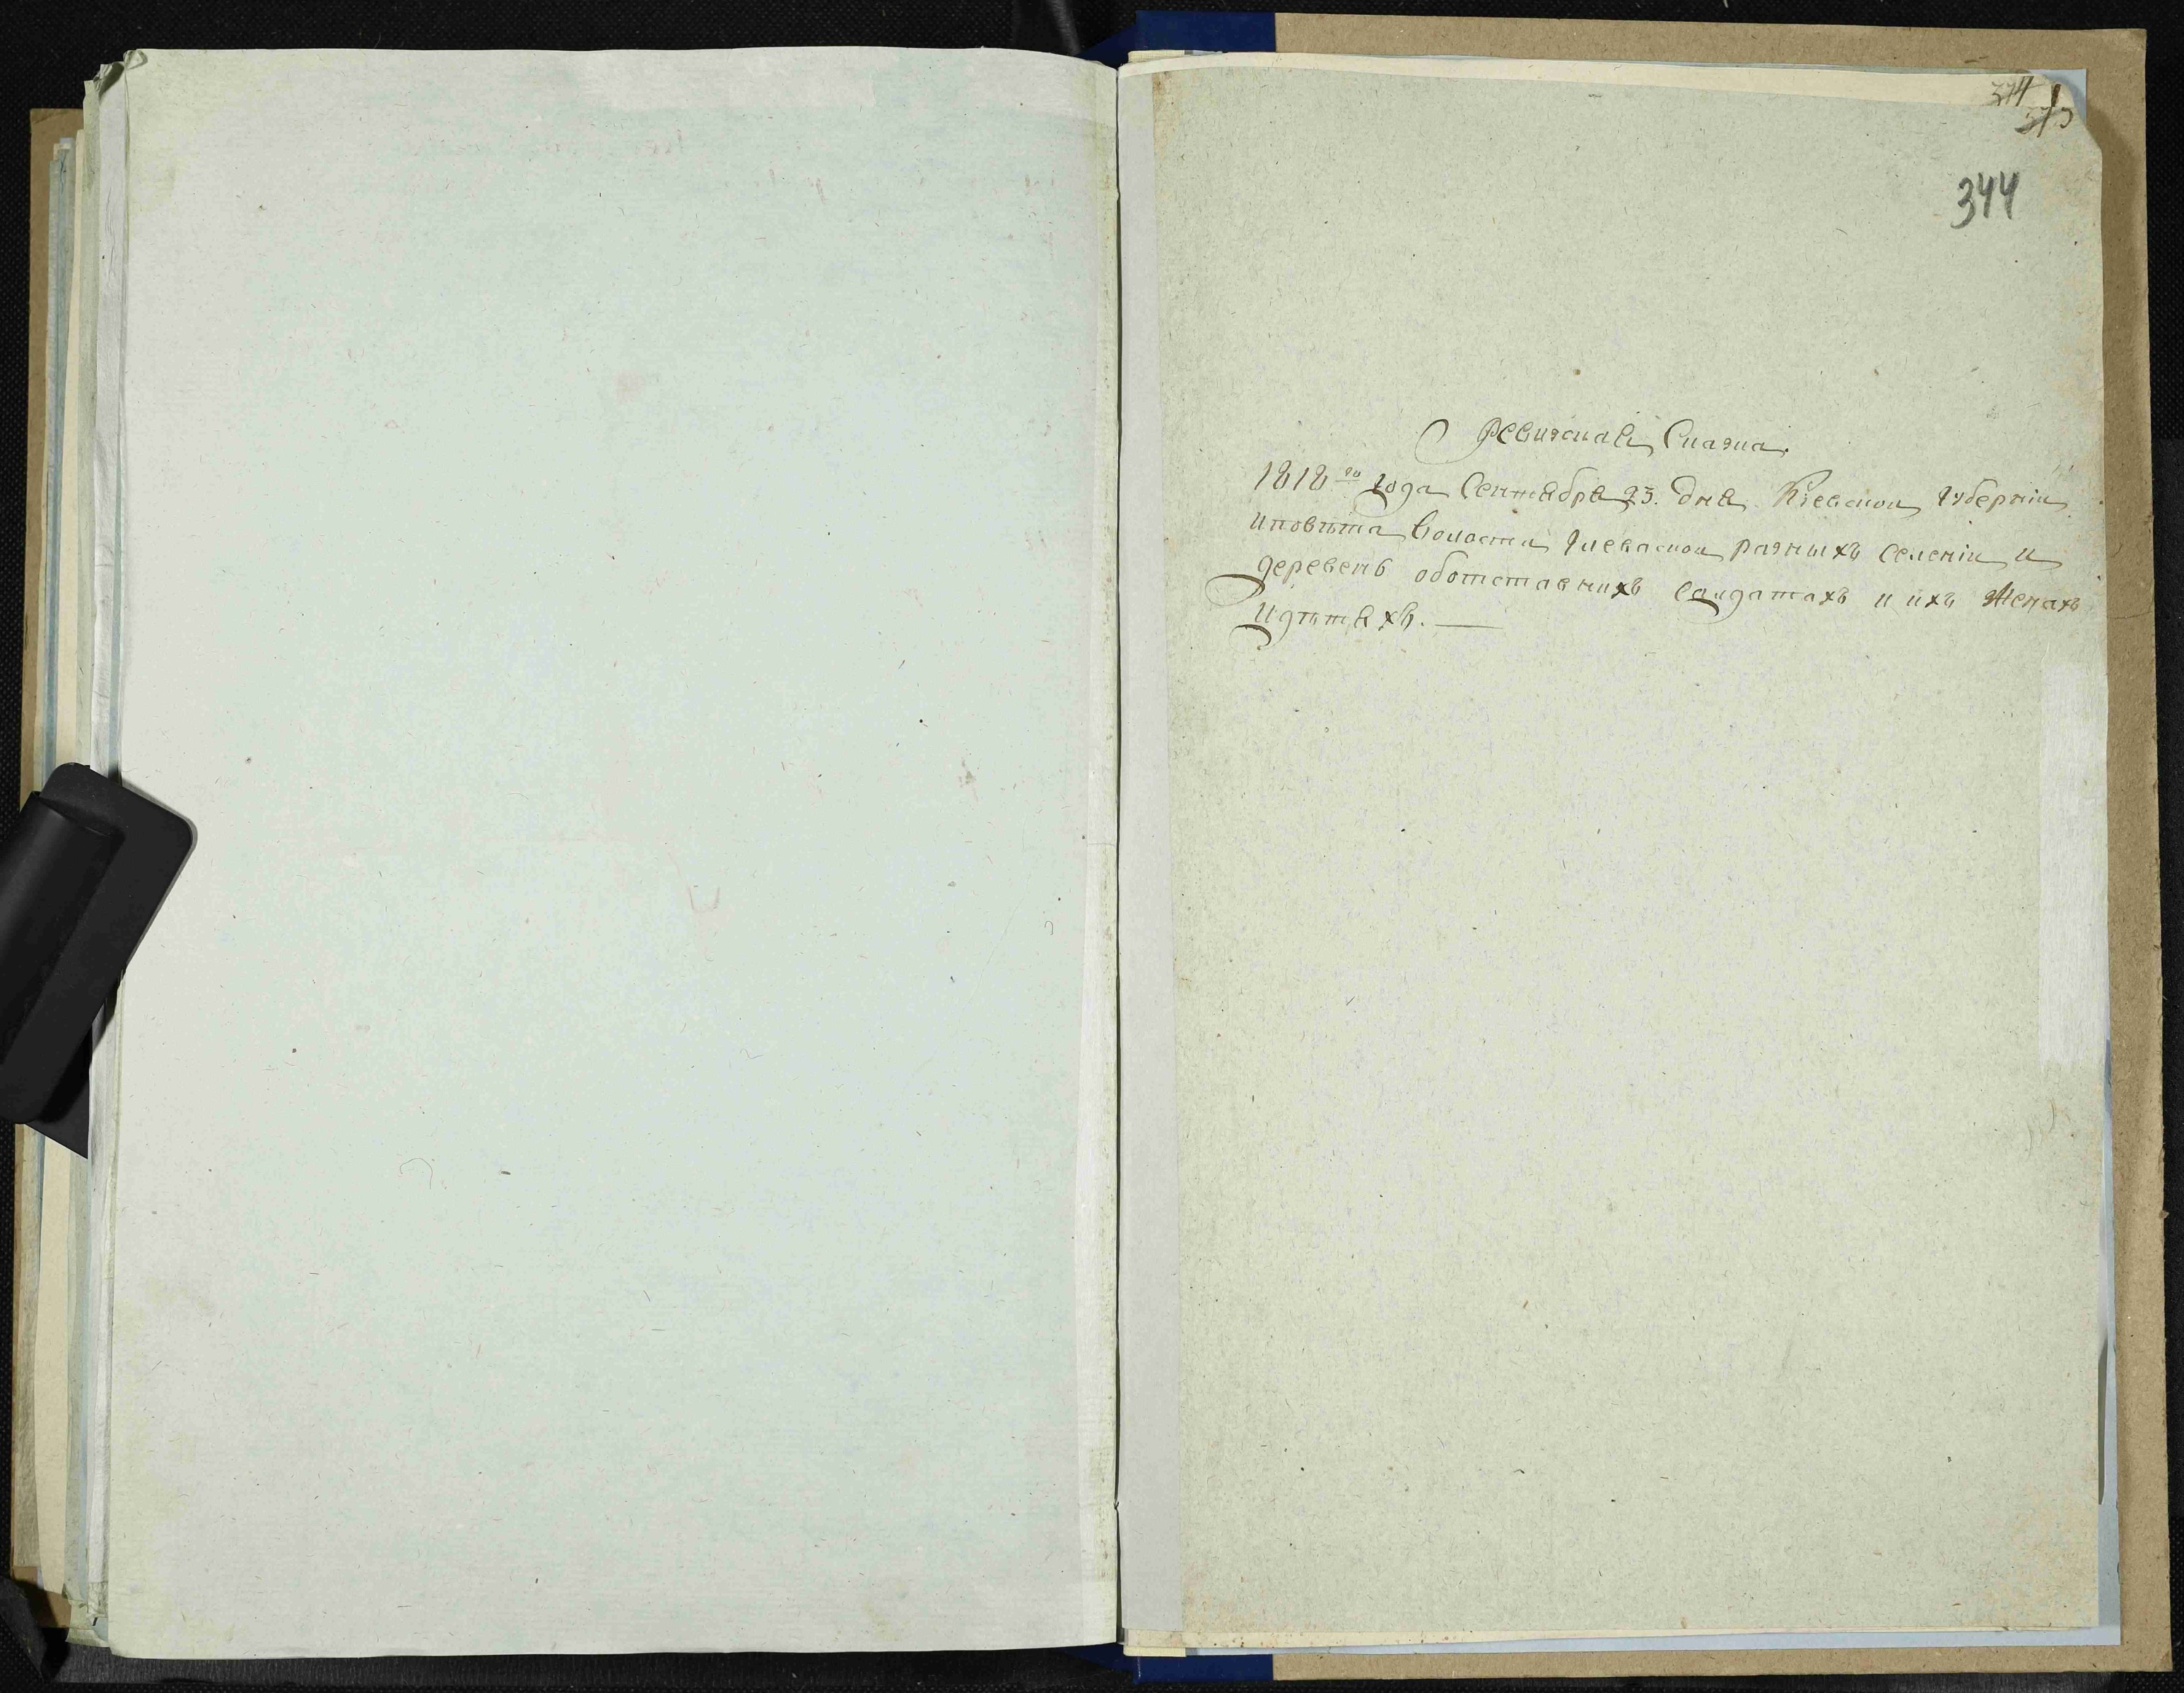 374
344
Ревизская Сказка.
1818го года Сентября 23. дня Кіевской губерніи
и повѣта волости Глеваской разныхъ селеній и
деревень оботставнихъ салдатахъ и ихъ женахъ
идѣтяхъ.